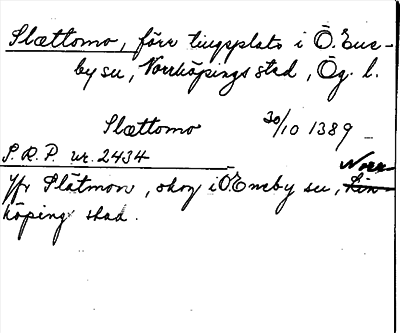 Slættomo, förr tingsplats i Ö. Ene-
by sn, Norrköpings stad, Ög. l.
Slættomo 30/10 1389
S.R.P. nr. 2434
Jfr Slätmon, skog i Ö. Eneby sn, Norr-
köpings stad.